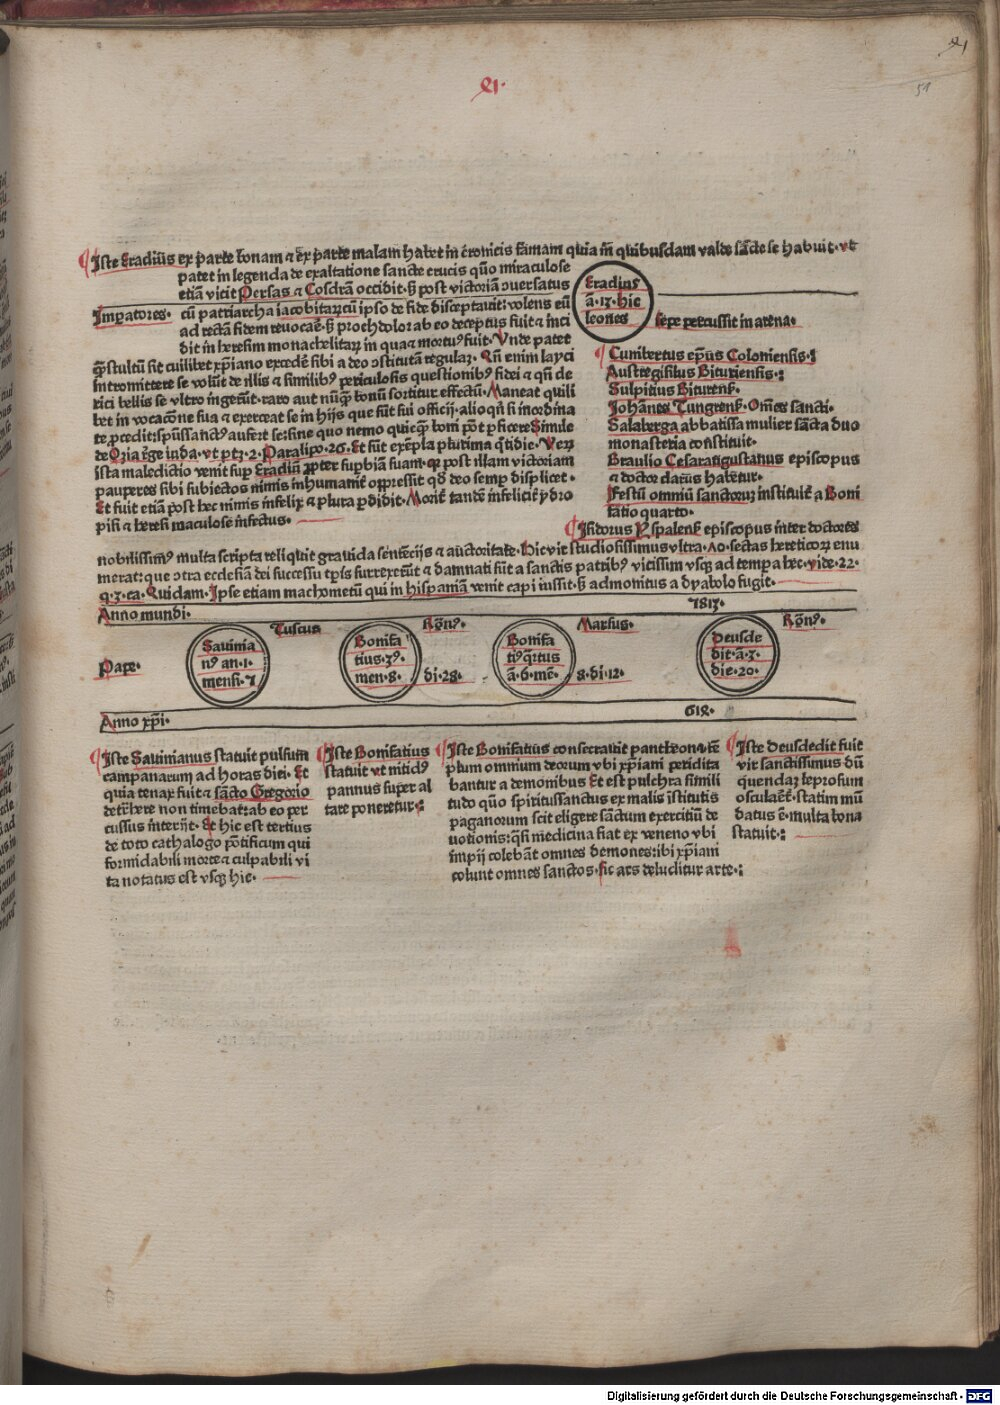 Iste Eradius ex parte bonam ⁊ ex parte malam habet in cronicis famam quia in quibusdam valde sācte se habuit· vt
patet in legenda de exaltatione sancte crucis quō miraculose
etiā vicit Persas ⁊ Cosdrā occidit· sꝫ post victoriā ↄuersatus
Imꝑatores·
cū patriarcha iacobitarꝫ cū ipso de fide disceptauit· volens eū
ad rectā fidem reuocare· sꝫ proch dolor ab eo deceptus fuit ⁊ inci
dit in heresim monachelitarꝫ in qua ⁊ mortuꝰ fuit· Vnde patet
Eradius
ā·13· hic
leones
sepe percussit in arena·
ꝙ̄ stultū sit cuilibet xp̄iano excedere sibi a deo ↄstitutā regulaꝫ· Qn̄ enim layci
intromittere se volūt de illis ⁊ similibꝰ periculosis questionibꝰ fidei ⁊ qn̄ de
rici bellis se vltro ingerūt· raro aut nūꝙ̄ bonū sortitur effectū· Maneat quili
bet in vocacōne sua ⁊ exerceat se in hijs que sūt sui officij· alioqn̄ si inordina
te ꝓcedit: spūssanctꝰ aufert se: sine quo nemo quicꝙ̄ boni pōt ꝑficere Simile
de Ozia rege iuda· vt ptꝫ· 2· Paralipo· 26· Et sūt exēpla plurima q̄tidie· Verꝫ
ista maledictio venit suꝑ Eradiū ꝓpter suꝑbiā suam· ꝙ post illam victoriam
pauperes sibi subiectos nimis inhumanit̄ oppressit qd̄ deo semꝑ displicet·
Et fuit etiā post hec nimis infelix ⁊ plura ꝑdidit· Morit̄ tandē infelicit̄ ydro
pisi ⁊ heresi maculose infectus·
Cunibertus ep̄us Coloniensis·:
Austregisilus Bituriensis·:
Sulpitius Biturens̄·
Johānes Tungrens̄· Om̄es sancti·
Salaberga abbatissa mulier sācta duo
monasteria constituit·
Braulio Cesaraugustanus episcopus
⁊ doctor clarus habetur·
Festū omniū sanctorꝫ instituit̄ a Boni
fatio quarto·
Isidorus Yspalens̄ episcopus inter doctores
nobilissimꝰ multa scripta reliquit grauida sentēcijs ⁊ auctoritate· Hic vir studiosissimus vltra ·70· sectas hereticorꝫ enu
merat: que ↄtra ecclesiā dei successu tp̄is surrexerūt ⁊ damnati sūt a sanctis patribꝰ vicissim vsqꝫ ad tempora hec· vide· 22·
q·3· ca· Quidam· Ipse etiam machometū qui in hispaniā venit capi iussit· sꝫ admonitus a dyabolo fugit·
Anno mundi·
7813·
Tuscus
Rōnꝰ·
Marsus·
Rōnꝰ·
Pape·
Sauinia
nꝰ an·1·
mensi·7
Bonifa
tius·3ꝰ·
men·8·
di·28·
Bonifa
tiꝰ q̄rtus
ā·6· mē·
8· di·12·
Deusde
dit· ā·3·
die·20·
Anno xp̄i·
618·
Iste Sauinianus statuit pulsum
campanarum ad horas diei· Et
quia tenax fuit ⁊ sācto Gregorio
detrahere non timebat: ab eo per
cussus interijt· Et hic est tertius
de toto cathalogo pōtificum qui
formidabili morte ⁊ culpabili vi
ta notatus est vsqꝫ hic·
Iste Bonifatius
statuit vt nitidꝰ
pannus super al
tare poneretur·:
Iste Bonifatius consecrauit pantheon· tē
plum omnium deorum vbi xp̄iani periclita
bantur a demonibus Et est pulchra simili
tudo quō spiritussanctus ex malis īstitutis
paganorum scit eligere sāctum exercitiū de
uotionis: q̄si medicina fiat ex veneno vbi
impij colebāt omnes demones: ibi xp̄iani
colunt omnes sanctos· sic ars deluditur arte·:
Iste deusdedit fuit
vir sanctissimus dū
quendaꝫ leprosum
osculaēt̄· statim mū
datus ē· multa bona
statuit·:
Digitalisierung gefördert durch die Deutsche Forschungsgemeinschaft - DFG